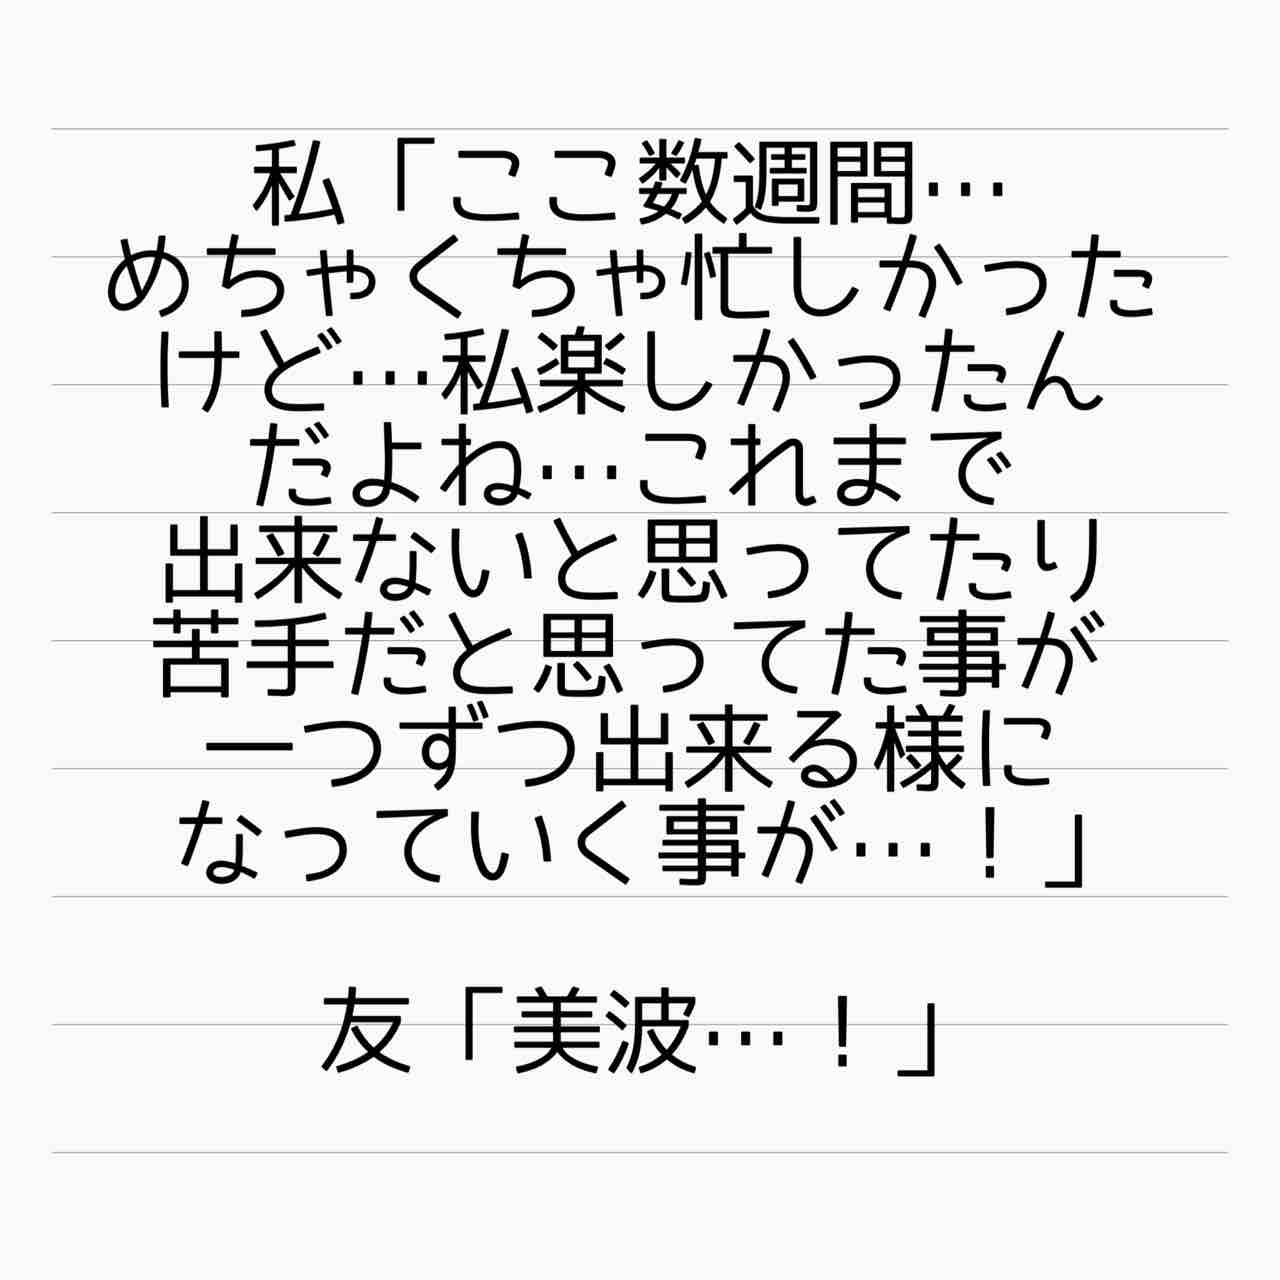 私「ここ数週間…
めちゃくちゃ忙しかった
けど…私楽しかったん
だよね…これまで
出来ないと思ってたり
苦手だと思ってた事が
一つずつ出来る様に
なっていく事が…！」
友「美波…！」